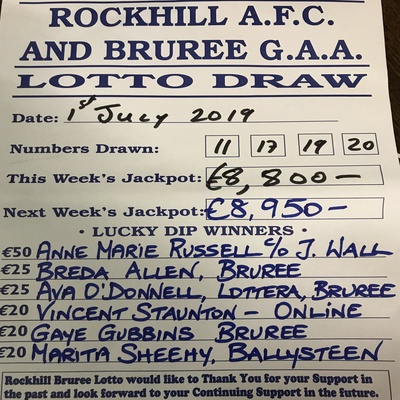 ROCKHILL A.F.C.
AND BRUREE G.A.A.
LOTTO DRAW
Date: 1st July 2019
Numbers Drawn: 11 17 19 20
This Week's Jackpot: €8,800-
Next Week's Jackpot: €8,950-
• LUCKY DIP WINNERS •
€50 ANNE MARIE RUSSELL c/o J. WALL
€25 BREDA ALLEN, BRUREE
€25 AVA O'DONNELL, LOTTERA, BRUREE
€20 VINCENT STAUNTON - ONLINE
€20 GAYE GUBBINS BRUREE
€20 MARITA SHEEHY, BALLYSTEEN
Rockhill Bruree Lotto would like to Thank You for your Support in
the past and look forward to your Continuing Support in the future.